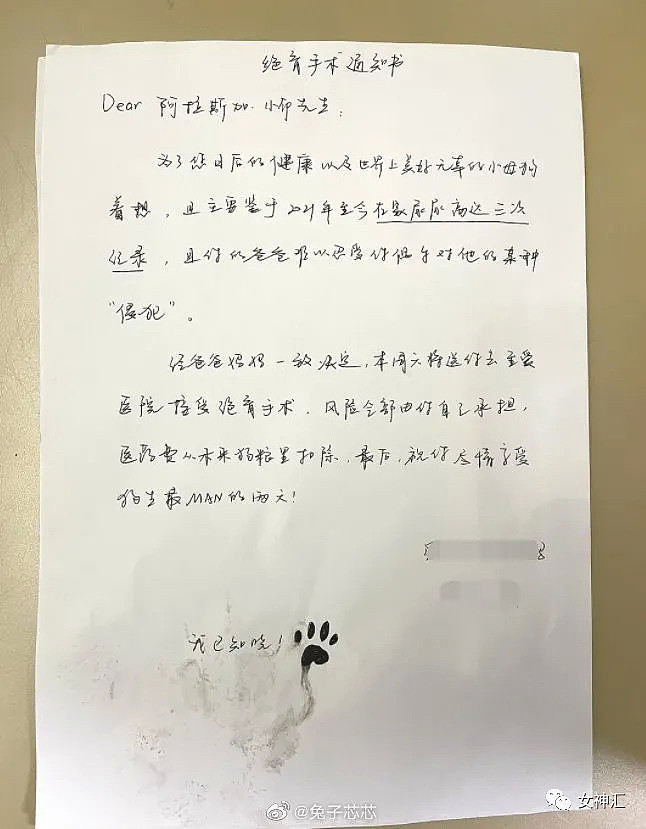 绝育手术通知书
Dear 阿拉斯加.小帅先生:
为了您日后的健康以及世界上美好无辜的小母狗
着想,且主要鉴于2021年至今在家尿尿高达三次
记录,且你的爸爸难以忍受你偶尔对他的某种
“侵犯”。
经爸爸妈妈一致决定,本周六将送你去至爱
医院接受绝育手术.风险全部由你自己承担,
医药费从未来狗粮里扣除.最后,祝你尽情享受
狗生最MAN的两天!
我已知晓!
@兔子芯芯
女神汇